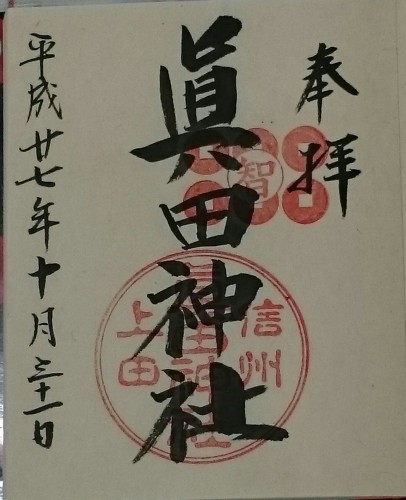 奉拝
智
眞田神社
信州
上田
眞田神社
平成廿七年十月三十一日